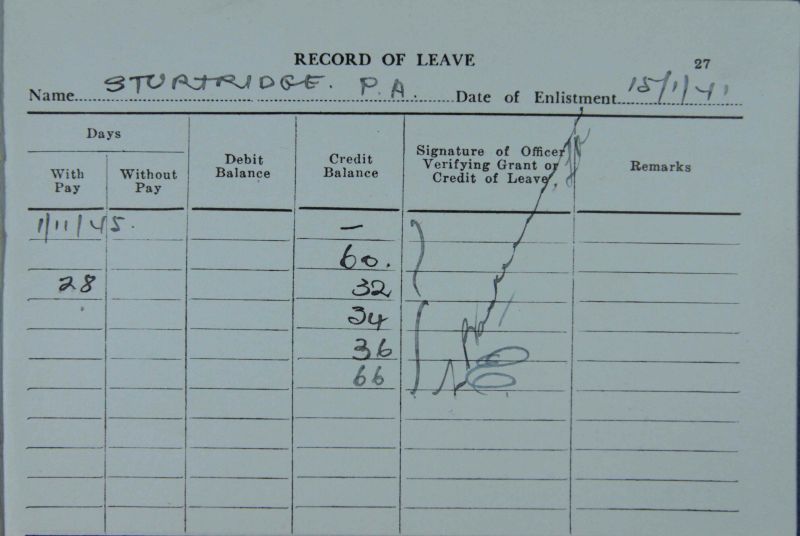 RECORD OF LEAVE 27
Name STURTRIDGE. P.A. Date of Enlistment 15/1/41
Days
With Pay Without Pay Debit Balance Credit Balance Signature of Officer Verifying Grant or Credit of Leave Remarks
1/11/45. —
60.
28 32
34
36
66